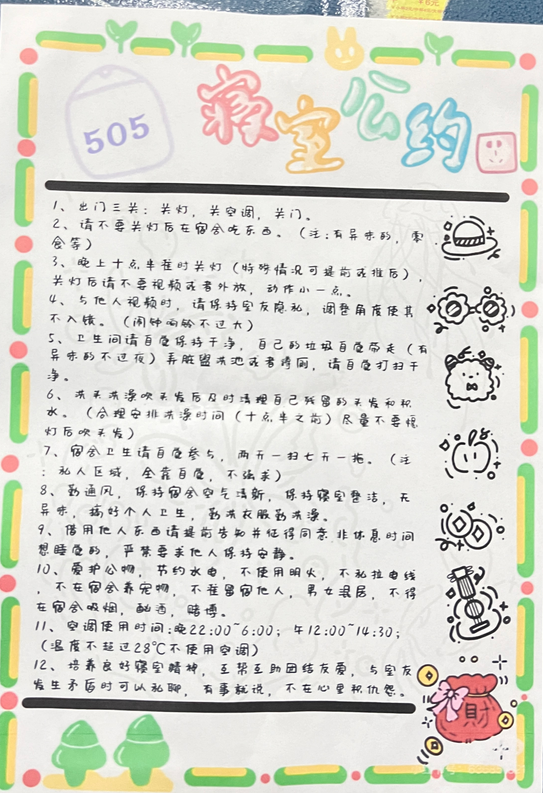 505
寝室公约
1、出门三关：关灯，关空调，关门。
2、请不要关灯后在宿舍吃东西。（注：有异味的，零
食等）
3、晚上十点半准时关灯（特殊情况可提前或推后），
关灯后请不要视频或者外放，动作小一点。
4、与他人视频时，请保持室友隐私，调整角度使其
不入镜。（闹钟响铃不过大）
5、卫生间请自觉保持干净，自己的垃圾自觉带走（有
异味的不过夜）弄脏盥洗池或者蹲厕，请自觉打扫干
净。
6、洗头洗澡吹头发后及时清理自己残留的头发和积
水。（合理安排洗澡时间（十点半之前）尽量不要熄
灯后吹头发）
7、宿舍卫生请自觉参与，两天一扫七天一拖。（注
：私人区域，全靠自觉，不强求）
8、勤通风，保持宿舍空气清新，保持寝室整洁，无
异味，搞好个人卫生，勤洗衣服勤洗澡。
9、借用他人东西请提前告知并征得同意.非休息时间
想睡觉的，严禁要求他人保持安静。
10、爱护公物，节约水电，不使用明火，不私拉电线
，不在宿舍养宠物，不准留宿他人，男女混居，不得
在宿舍吸烟，酗酒，赌博。
11、空调使用时间：晚22:00~6:00；午12:00~14:30；
（温度不超过28℃不使用空调）
12、培养良好寝室精神，互帮互助团结友爱，与室友
发生矛盾时可以私聊，有事就说，不在心里积仇怨。
財